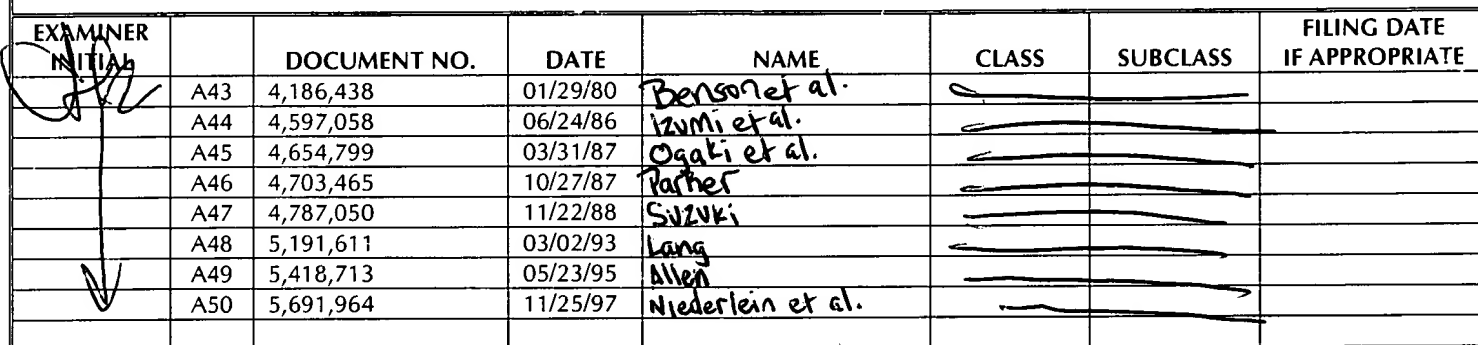 EXAMINER INITIAL DOCUMENT NO. DATE NAME CLASS SUBCLASS FILING DATE IF APPROPRIATE
A43 4,186,438 01/29/80 Benson et al.
A44 4,597,058 06/24/86 Izumi et al.
A45 4,654,799 03/31/87 Ogaki et al.
A46 4,703,465 10/27/87 Parker
A47 4,787,050 11/22/88 Suzuki
A48 5,191,611 03/02/93 Lang
A49 5,418,713 05/23/95 Allen
A50 5,691,964 11/25/97 Niederlein et al.